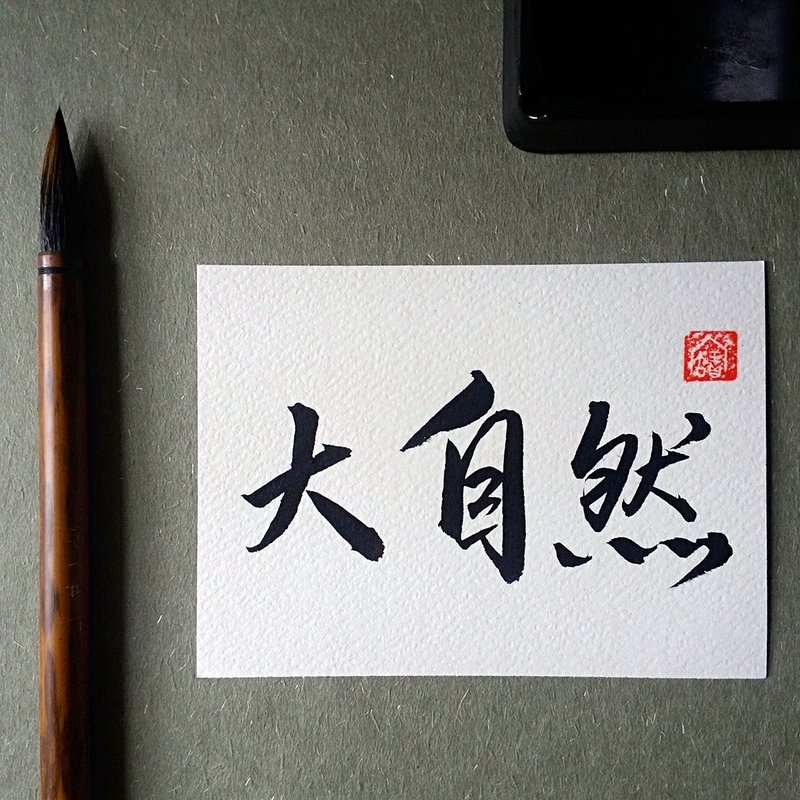 大自然